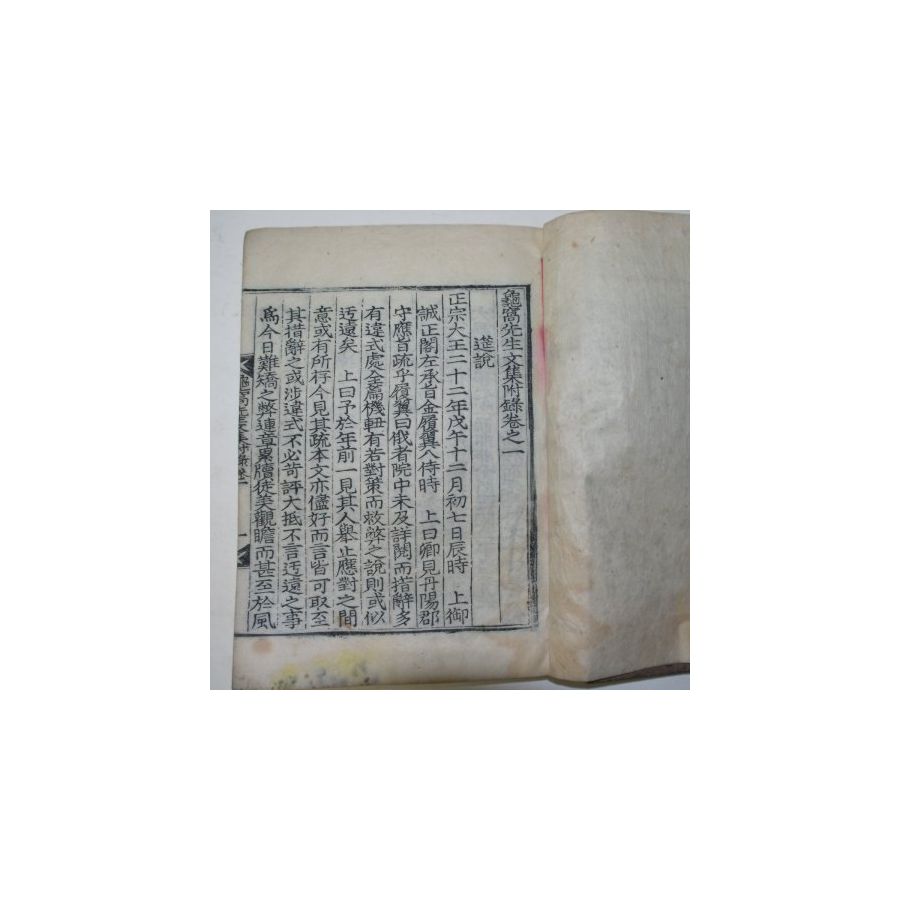 龜窩先生文集附錄卷之一
筵說
正宗大王二十二年戊午十二月初七日辰時 上御
誠正閣左承旨金履翼入侍時 上曰卿見丹陽郡
守應旨疏乎履翼曰俄者院中未及詳閱而措辭多
有違式處全篇機軸有若對策而救弊之說則或似
迃遠矣 上曰予於年前一見其人舉止應對之間
意或有所存今見其疏本文亦儘好而言皆可取至
其措辭之或涉違式不必苛評大抵不言迃遠之事
爲今日難矯之弊連章累牘徒美觀瞻而甚至於風
龜窩先生文集附錄卷一